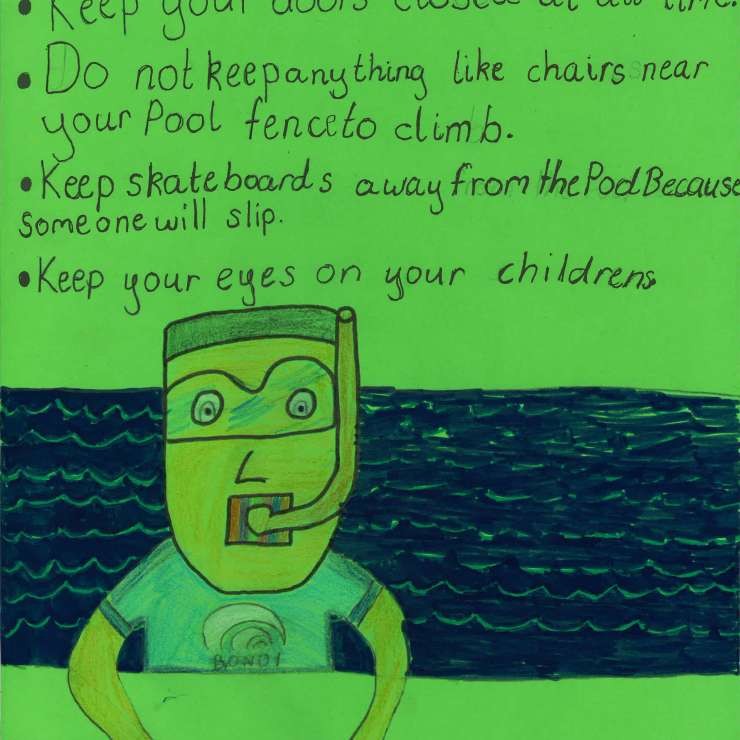 • Keep your doors closed at all time.
• Do not keep anything like chairs near
your Pool fence to climb.
• Keep skateboards away from the Pool Because
someone will slip.
• Keep your eyes on your childrens
BONDI